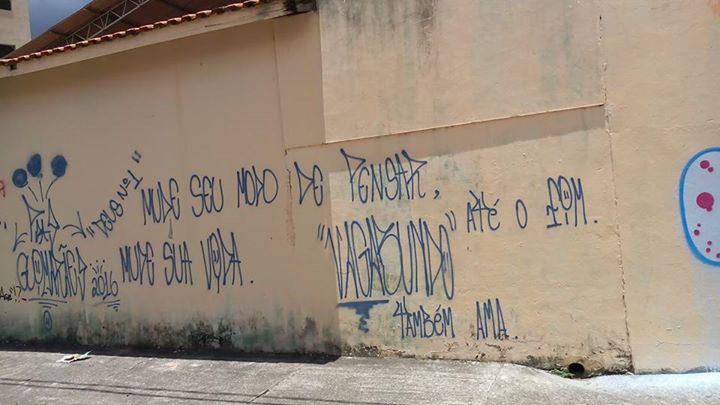 "DEUS Nº1"
MUDE SEU MODO DE PENSAR,
MUDE SUA VIDA.
"VAGABUNDO" ATÉ O FIM.
TAMBÉM AMA.
GUIMARÃES
2016